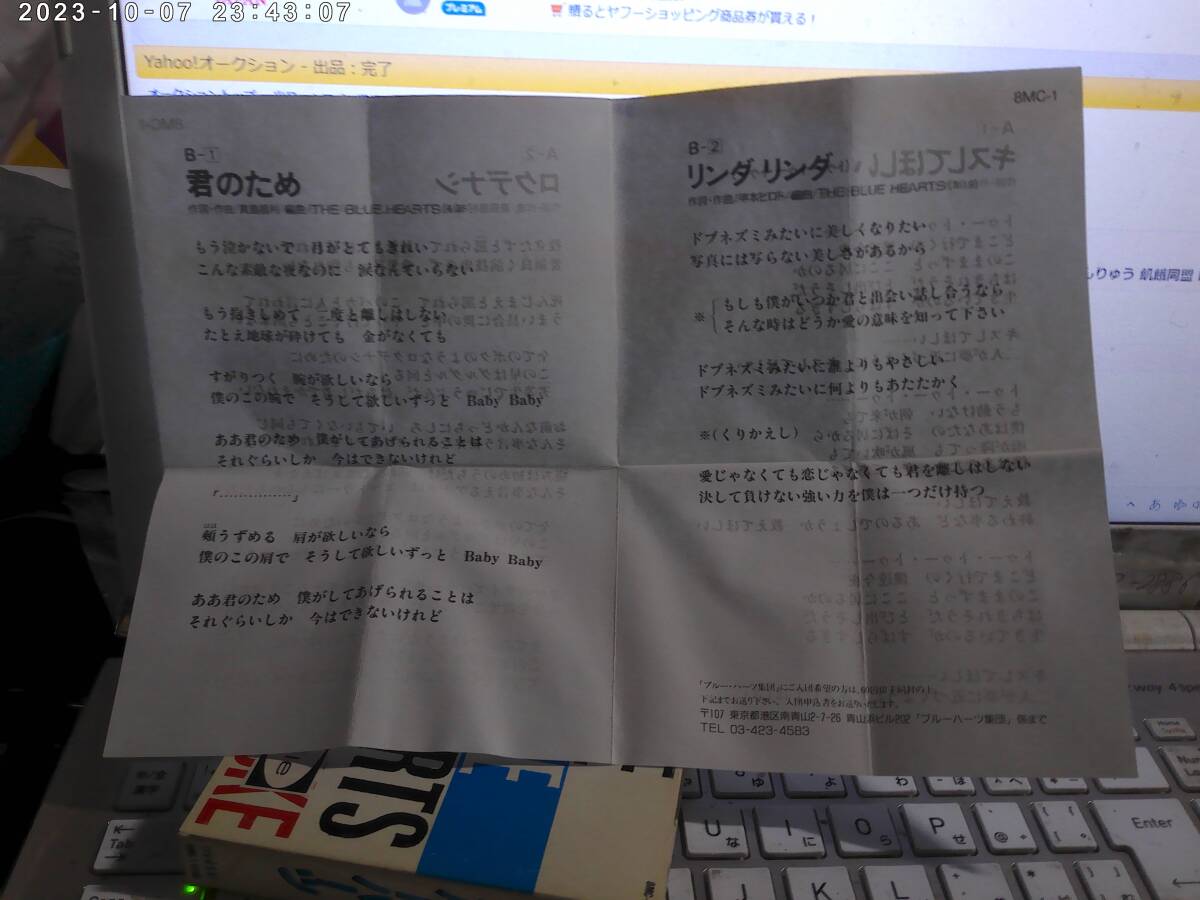 2023-10-07 23:43:07
プレミアム
贈るとヤフーショッピング商品券が買える！
Yahoo!オークション - 出品：完了
B-1
君のため
もう泣かないで 月がとてもきれい
こんな素敵な夜なのに 涙なんていらない
もう抱きしめて 二度と離しはしない
たとえ地球が砕けても 金がなくても
すがりつく 腕が欲しいなら
僕のこの腕で そうして欲しいずっと Baby Baby
ああ君のため 僕がしてあげられることは
それぐらいしか 今はできないけれど
「……………」
頬うずめる 肩が欲しいなら
僕のこの肩で そうして欲しいずっと Baby Baby
ああ君のため 僕がしてあげられることは
それぐらいしか 今はできないけれど
8MC-1
B-2
リンダ リンダ
作詞・作曲/甲本ヒロト 編曲/THE BLUE HEARTS
ドブネズミみたいに美しくなりたい
写真には写らない美しさがあるから
※ もしも僕がいつか君と出会い話し合うなら
そんな時はどうか愛の意味を知って下さい
ドブネズミみたいに誰よりもやさしい
ドブネズミみたいに何よりもあたたかく
※(くりかえし)
愛じゃなくても恋じゃなくても君を離しはしない
決して負けない強い力を僕は一つだけ持つ
「ブルー・ハーツ集団」にご入団希望の方は、60円切手同封の上、
下記までお送り下さい。入団申込書をお送りいたします。
〒107 東京都港区南青山2-7-26 青山浜ビル202 「ブルーハーツ集団」係まで
TEL 03-423-4583
Enter
Tab
U な
I に
O ら
P せ
J
K
L